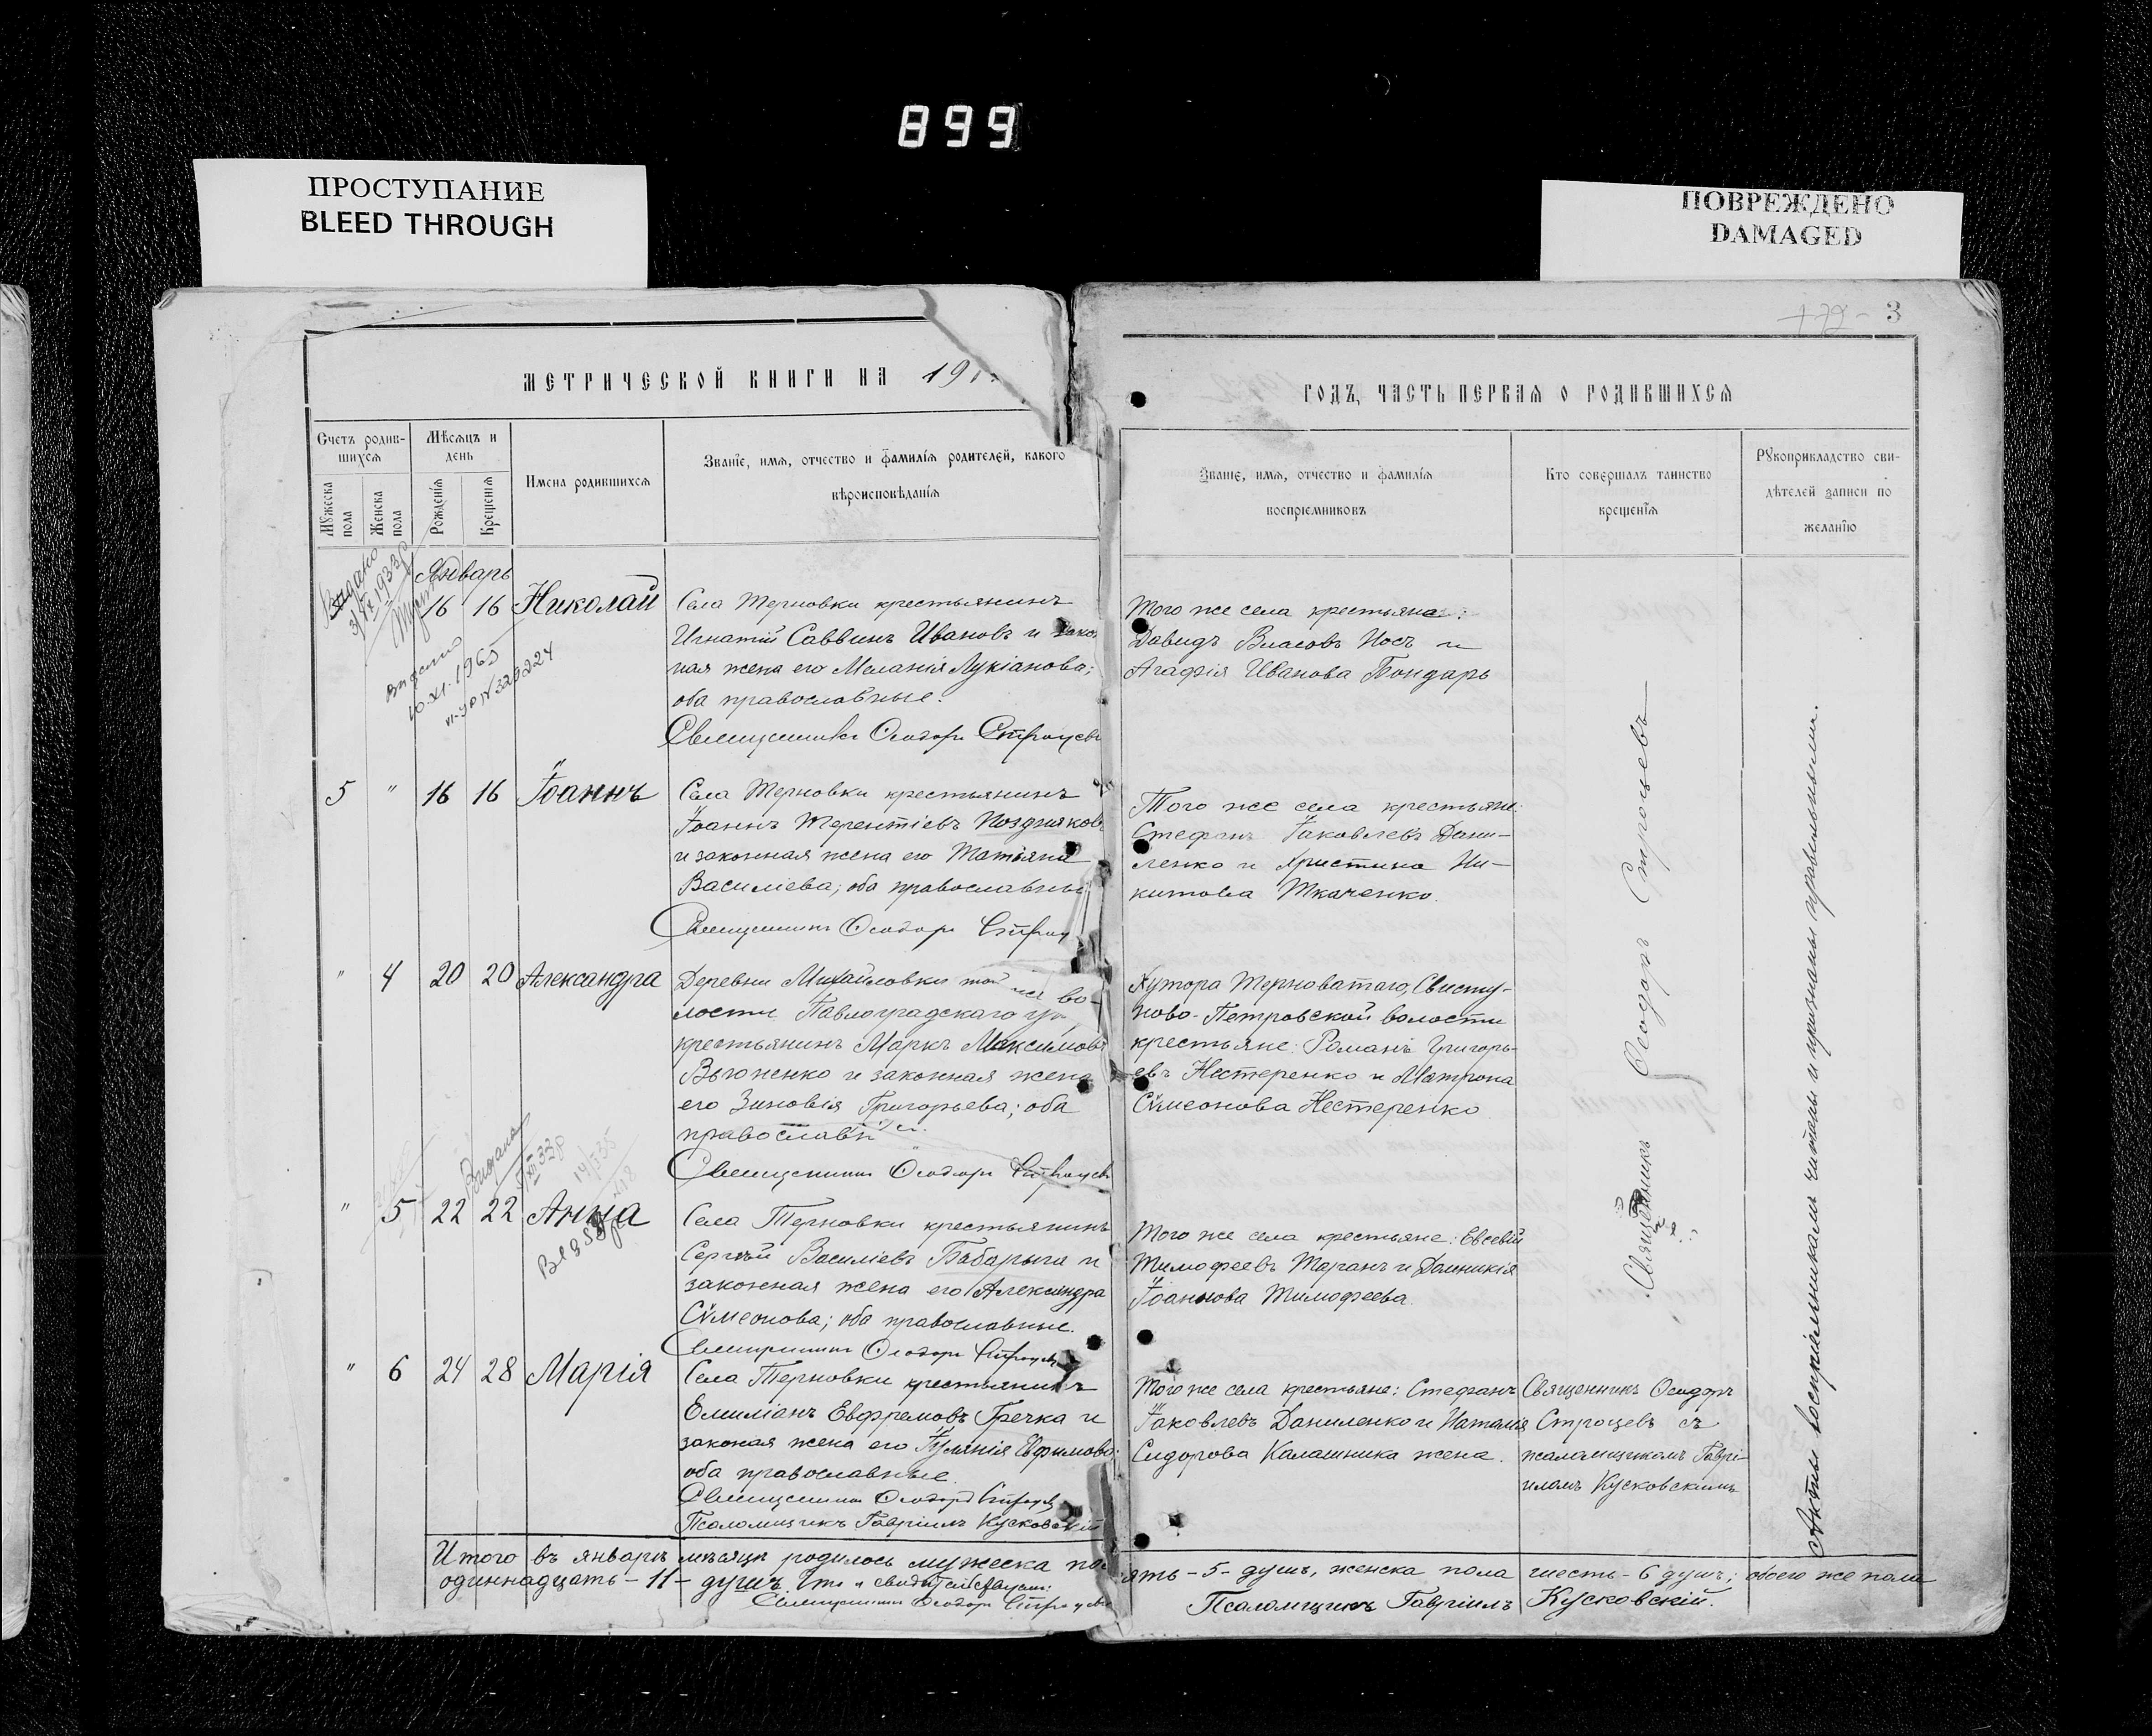 899
ПРОСТУПАНИЕ
BLEED THROUGH
ПОВРЕЖДЕНО
DAMAGED
3
МЕТРИЧЕСКОЙ КНИГИ НА 191
ГОДЪ, ЧАСТЬ ПЕРВАЯ О РОДИВШИХСЯ
Счетъ родив-
шихся
Мѣсяцъ и
день
Мужеска пола
Женска пола
Рожденія
Крещенія
Имена родившихся
Званіе, имя, отчество и фамилія родителей, какого
вѣроисповѣданія
Званіе, имя, отчество и фамилія
воспріемниковъ
Кто совершалъ таинство
крещенія
Рукоприкладство сви-
дѣтелей записи по
желанію
Январь
16 16 Николай
Села Терновки крестьянинъ
Игнатій Саввинъ Ивановъ и
ная жена его Меланія Лукіанова;
оба православные.
Священникъ Ѳеодоръ Строцевъ
Того же села крестьяне:
Давидъ Власовъ Носъ и
Агафія Иванова Бондарь
Видано
1933р
10.XI.1965
5 " 16 16 Іоаннъ
Села Терновки крестьянинъ
Іоаннъ Терентіевъ Поздняковъ
и законная жена его Татіана
Василіева; оба православные
Священникъ Ѳеодоръ Строц
Того же села крестьяне:
Стефанъ Іаковлевъ Дани-
ленко и Христина Ни-
китова Ткаченко.
" 4 20 20 Александра
Деревни Михайловки той же во-
лости Павлоградскаго
крестьянинъ Маркъ Максимовъ
и законная жена
его Зиновія Григорьева; оба
православн
Священникъ Ѳеодоръ Строцевъ
Хутора Терноватаго, Свисту-
ново-Петровской волости
крестьяне: Романъ Григорь-
евъ Нестеренко и Матрона
Сѵмеонова Нестеренко
Видано
" 5 22 22 Анна
Села Терновки крестьянинъ
Сергѣй Василіевъ Бабарыга и
законная жена его Александра
Сѵмеонова; оба православные.
Священникъ Ѳеодоръ Строцевъ
Того же села крестьяне: Евсевій
Тимофеевъ Таранъ и Домникія
Іоаннова Тимофеева.
" 6 24 28 Марія
Села Терновки крестьянинъ
Емиліанъ Евфремовъ Гречка и
законая жена его Іуліанія Евфимова;
оба православные.
Священникъ Ѳеодоръ Строцевъ
Псаломщикъ Гавріилъ Кусковскій
Того же села крестьяне: Стефанъ
Іаковлевъ Даниленко и Наталія
Сидорова Калашника жена.
Священникъ Ѳеодоръ
Строцевъ съ
псаломщикомъ Гаврі-
иломъ Кусковскимъ
Священникъ Ѳеодоръ Строцевъ
Акты воспріемникамъ читаны и признаны правильными.
Итого въ январѣ мѣсяцѣ родилось мужеска по ять - 5 - душъ, женска пола шесть - 6 душъ; обоего же пола
одиннадцать - 11 - душъ.
Священникъ Ѳеодоръ Строцевъ
Псаломщикъ Гавріилъ Кусковскій.